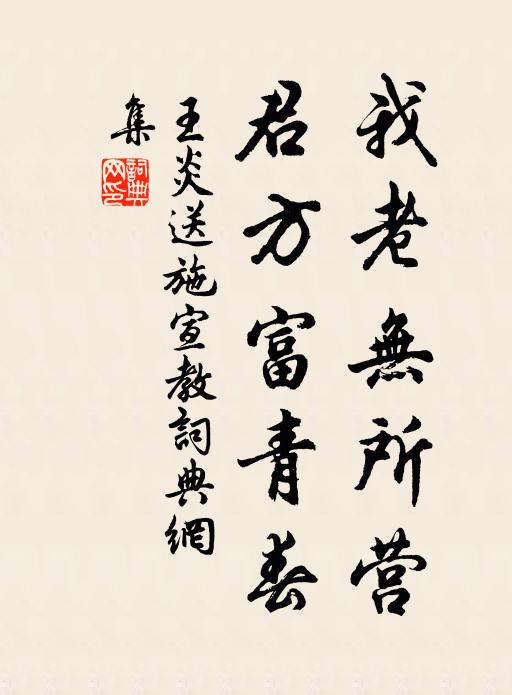 我老無所营
君方富青春
王炎送施宣教詞典網
集
詞典
网印